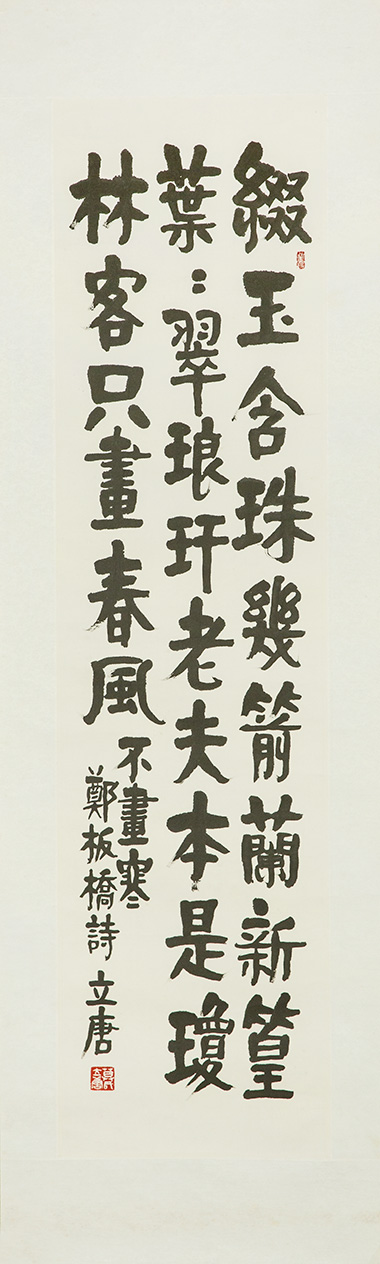 綴玉含珠幾箭蘭新篁
葉：翠琅玕老夫本是瓊
林客只畫春風不畫寒
鄭板橋詩 立唐